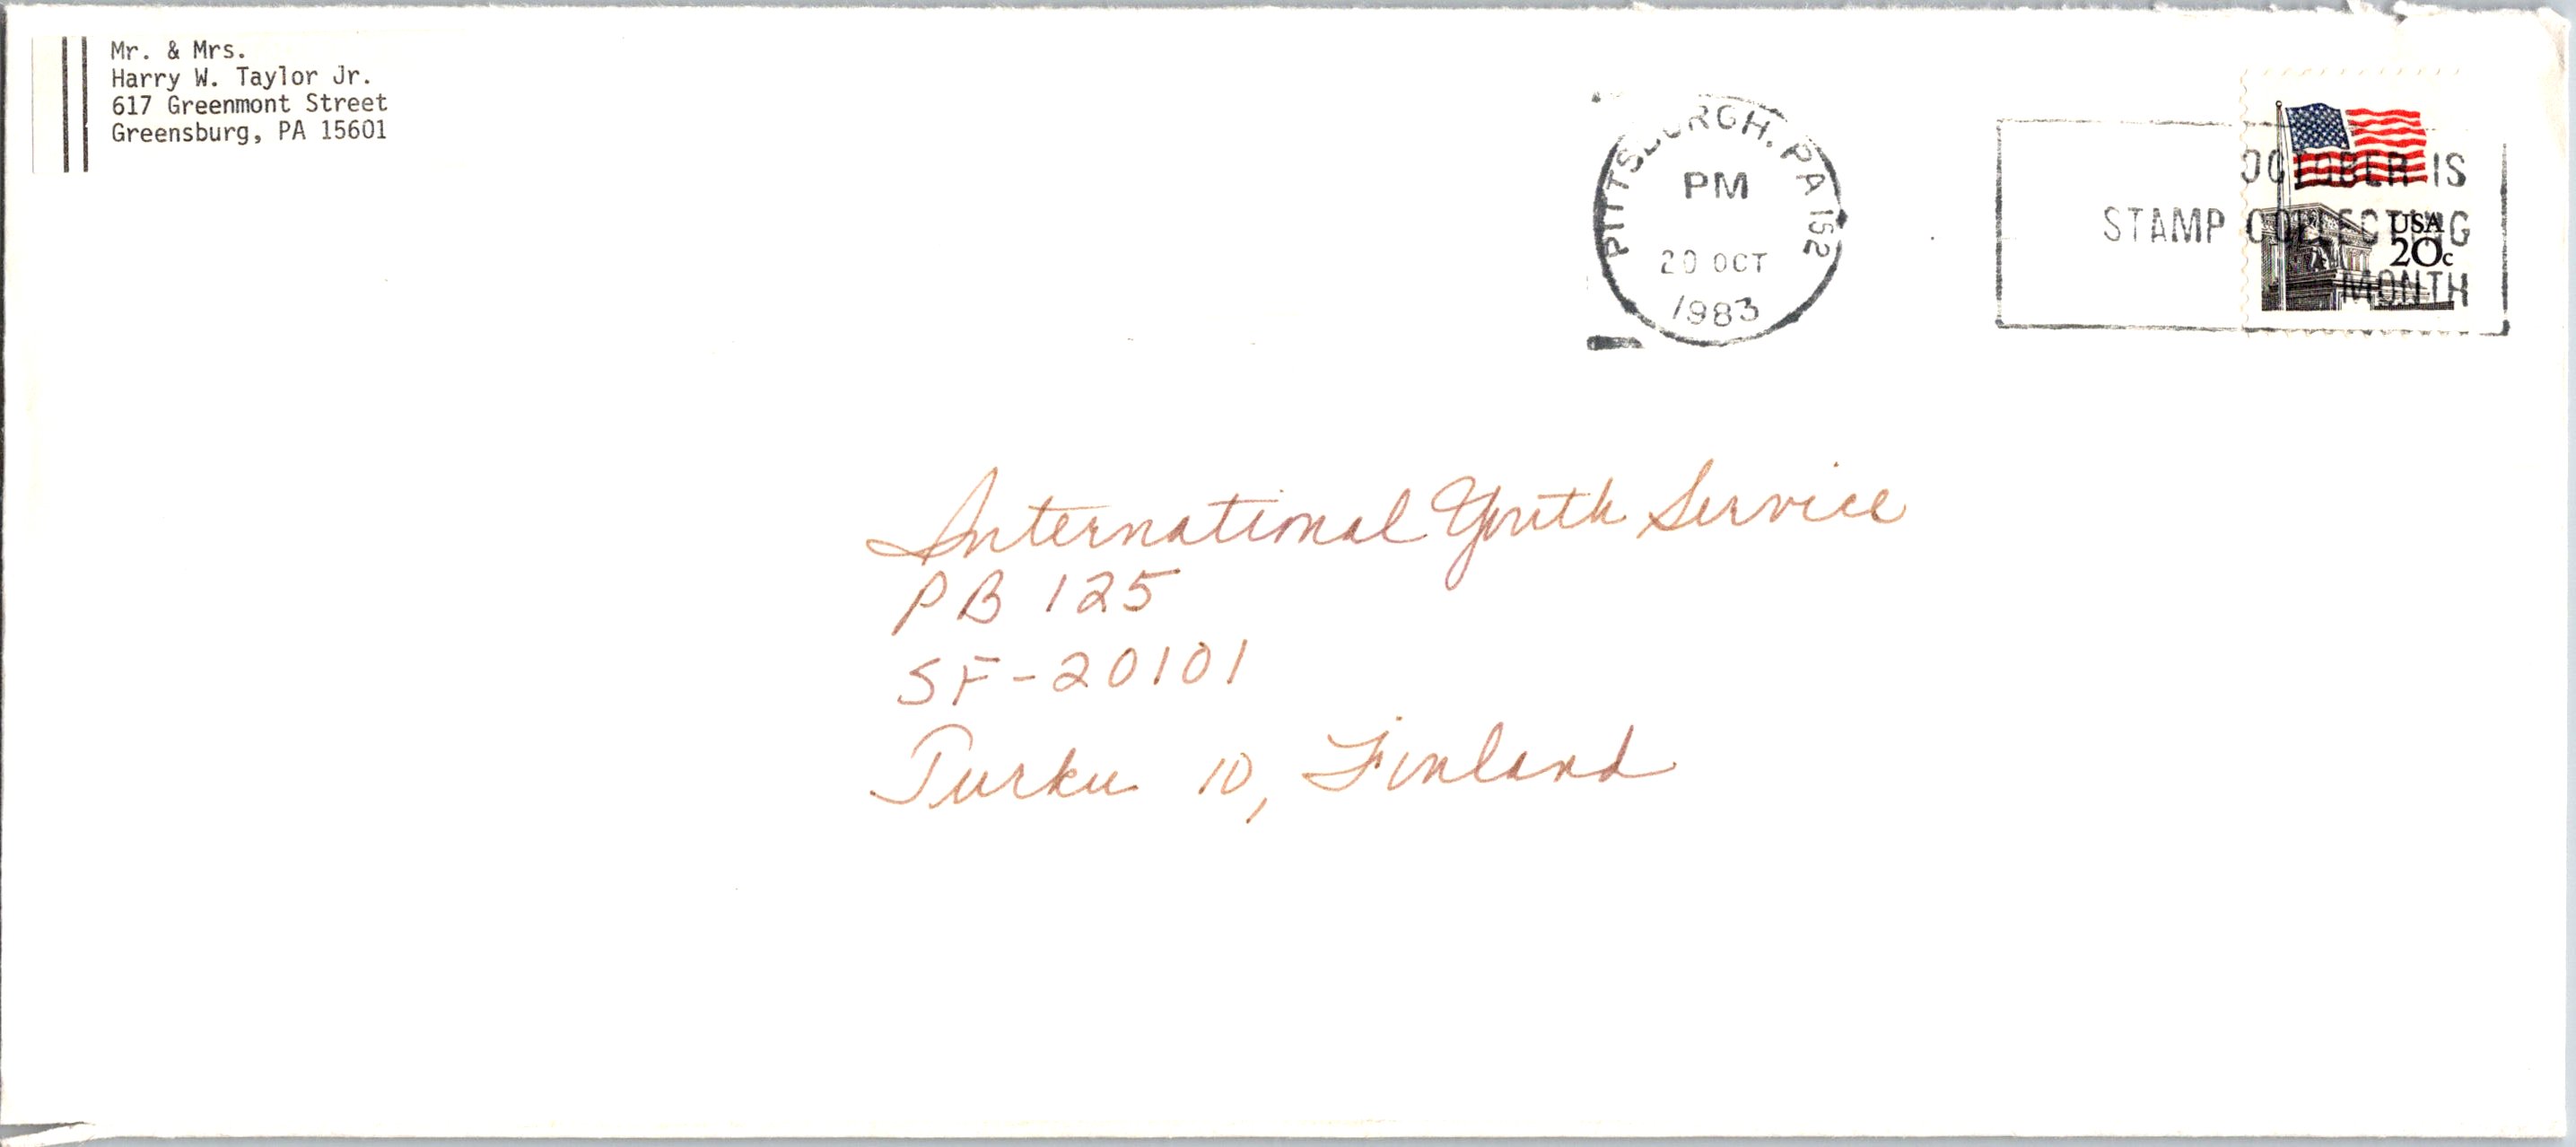 Mr. & Mrs.
Harry W. Taylor Jr.
617 Greenmont Street
Greensburg, PA 15601
PITTSBURGH, PA 152
PM
20 OCT
1983
OCTOBER IS
STAMP COLLECTING
MONTH
USA
20c
International Youth Service
PB 125
SF-20101
Turku 10, Finland